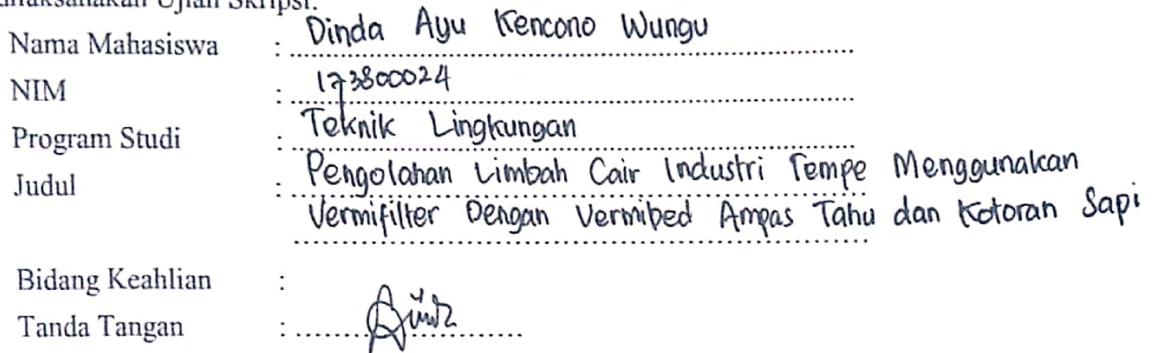 Ujian Skripsi.
Nama Mahasiswa : Dinda Ayu Kencono Wungu
NIM : 173800024
Program Studi : Teknik Lingkungan
Judul : Pengolahan Limbah Cair Industri Tempe Menggunakan
Vermifilter Dengan Vermibed Ampas Tahu dan Kotoran Sapi
Bidang Keahlian :
Tanda Tangan :